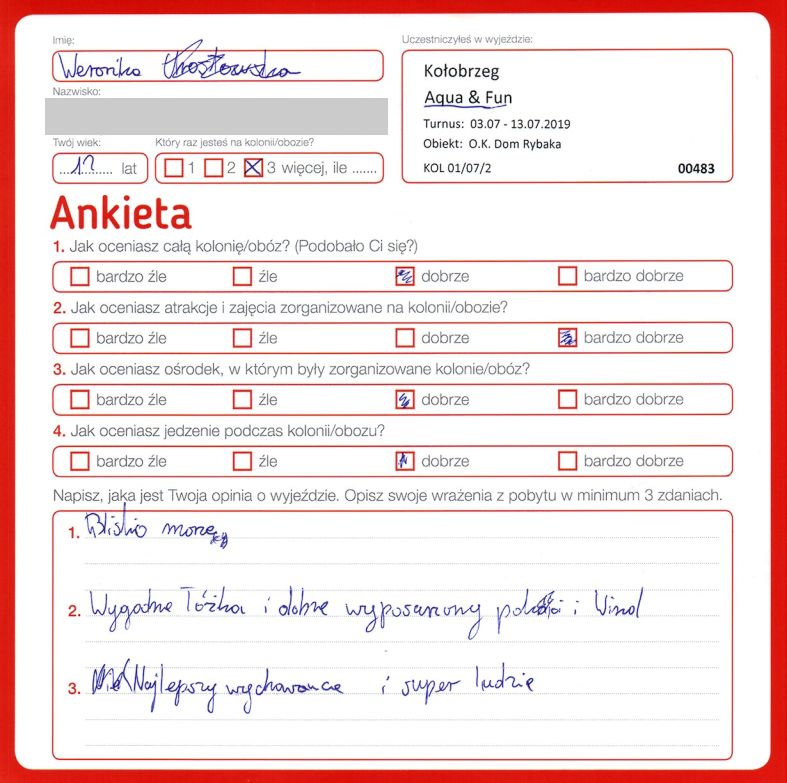 Imię:
Weronika
Nazwisko:
Twój wiek:
12 lat
Który raz jesteś na kolonii/obozie?
1 2 3 więcej, ile .......
Uczestniczyłeś w wyjeździe:
Kołobrzeg
Aqua & Fun
Turnus: 03.07 - 13.07.2019
Obiekt: O.K. Dom Rybaka
KOL 01/07/2 00483
Ankieta
1. Jak oceniasz całą kolonię/obóz? (Podobało Ci się?)
bardzo źle źle dobrze bardzo dobrze
2. Jak oceniasz atrakcje i zajęcia zorganizowane na kolonii/obozie?
bardzo źle źle dobrze bardzo dobrze
3. Jak oceniasz ośrodek, w którym były zorganizowane kolonie/obóz?
bardzo źle źle dobrze bardzo dobrze
4. Jak oceniasz jedzenie podczas kolonii/obozu?
bardzo źle źle dobrze bardzo dobrze
Napisz, jaka jest Twoja opinia o wyjeździe. Opisz swoje wrażenia z pobytu w minimum 3 zdaniach.
1. Blisko morze
2. Wygodne łóżka i dobrze wyposarzony i
3. Najlepszy wychowawca i super ludzie